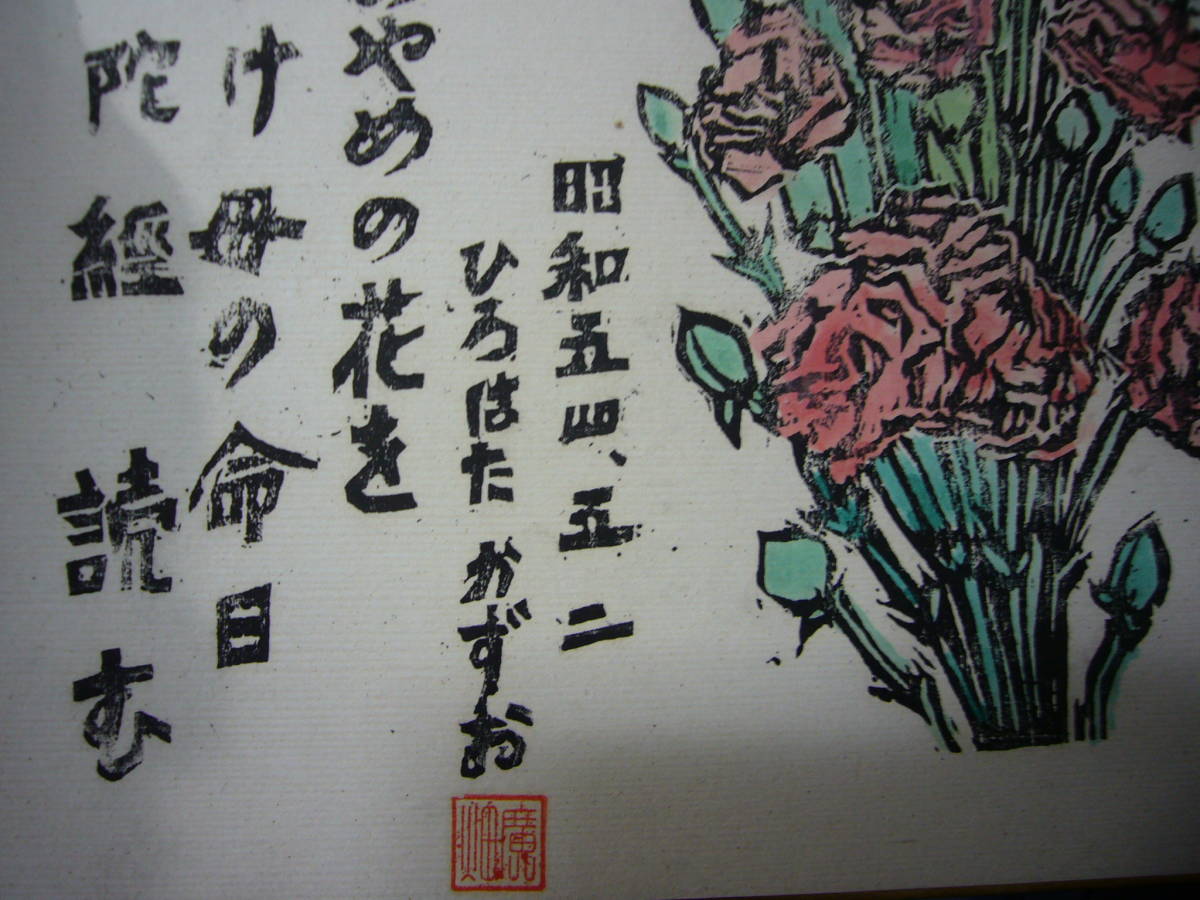 昭和五四、五 二
ひろはた かずお
やめの花を
け母の命日
陀經 読む
廣畑